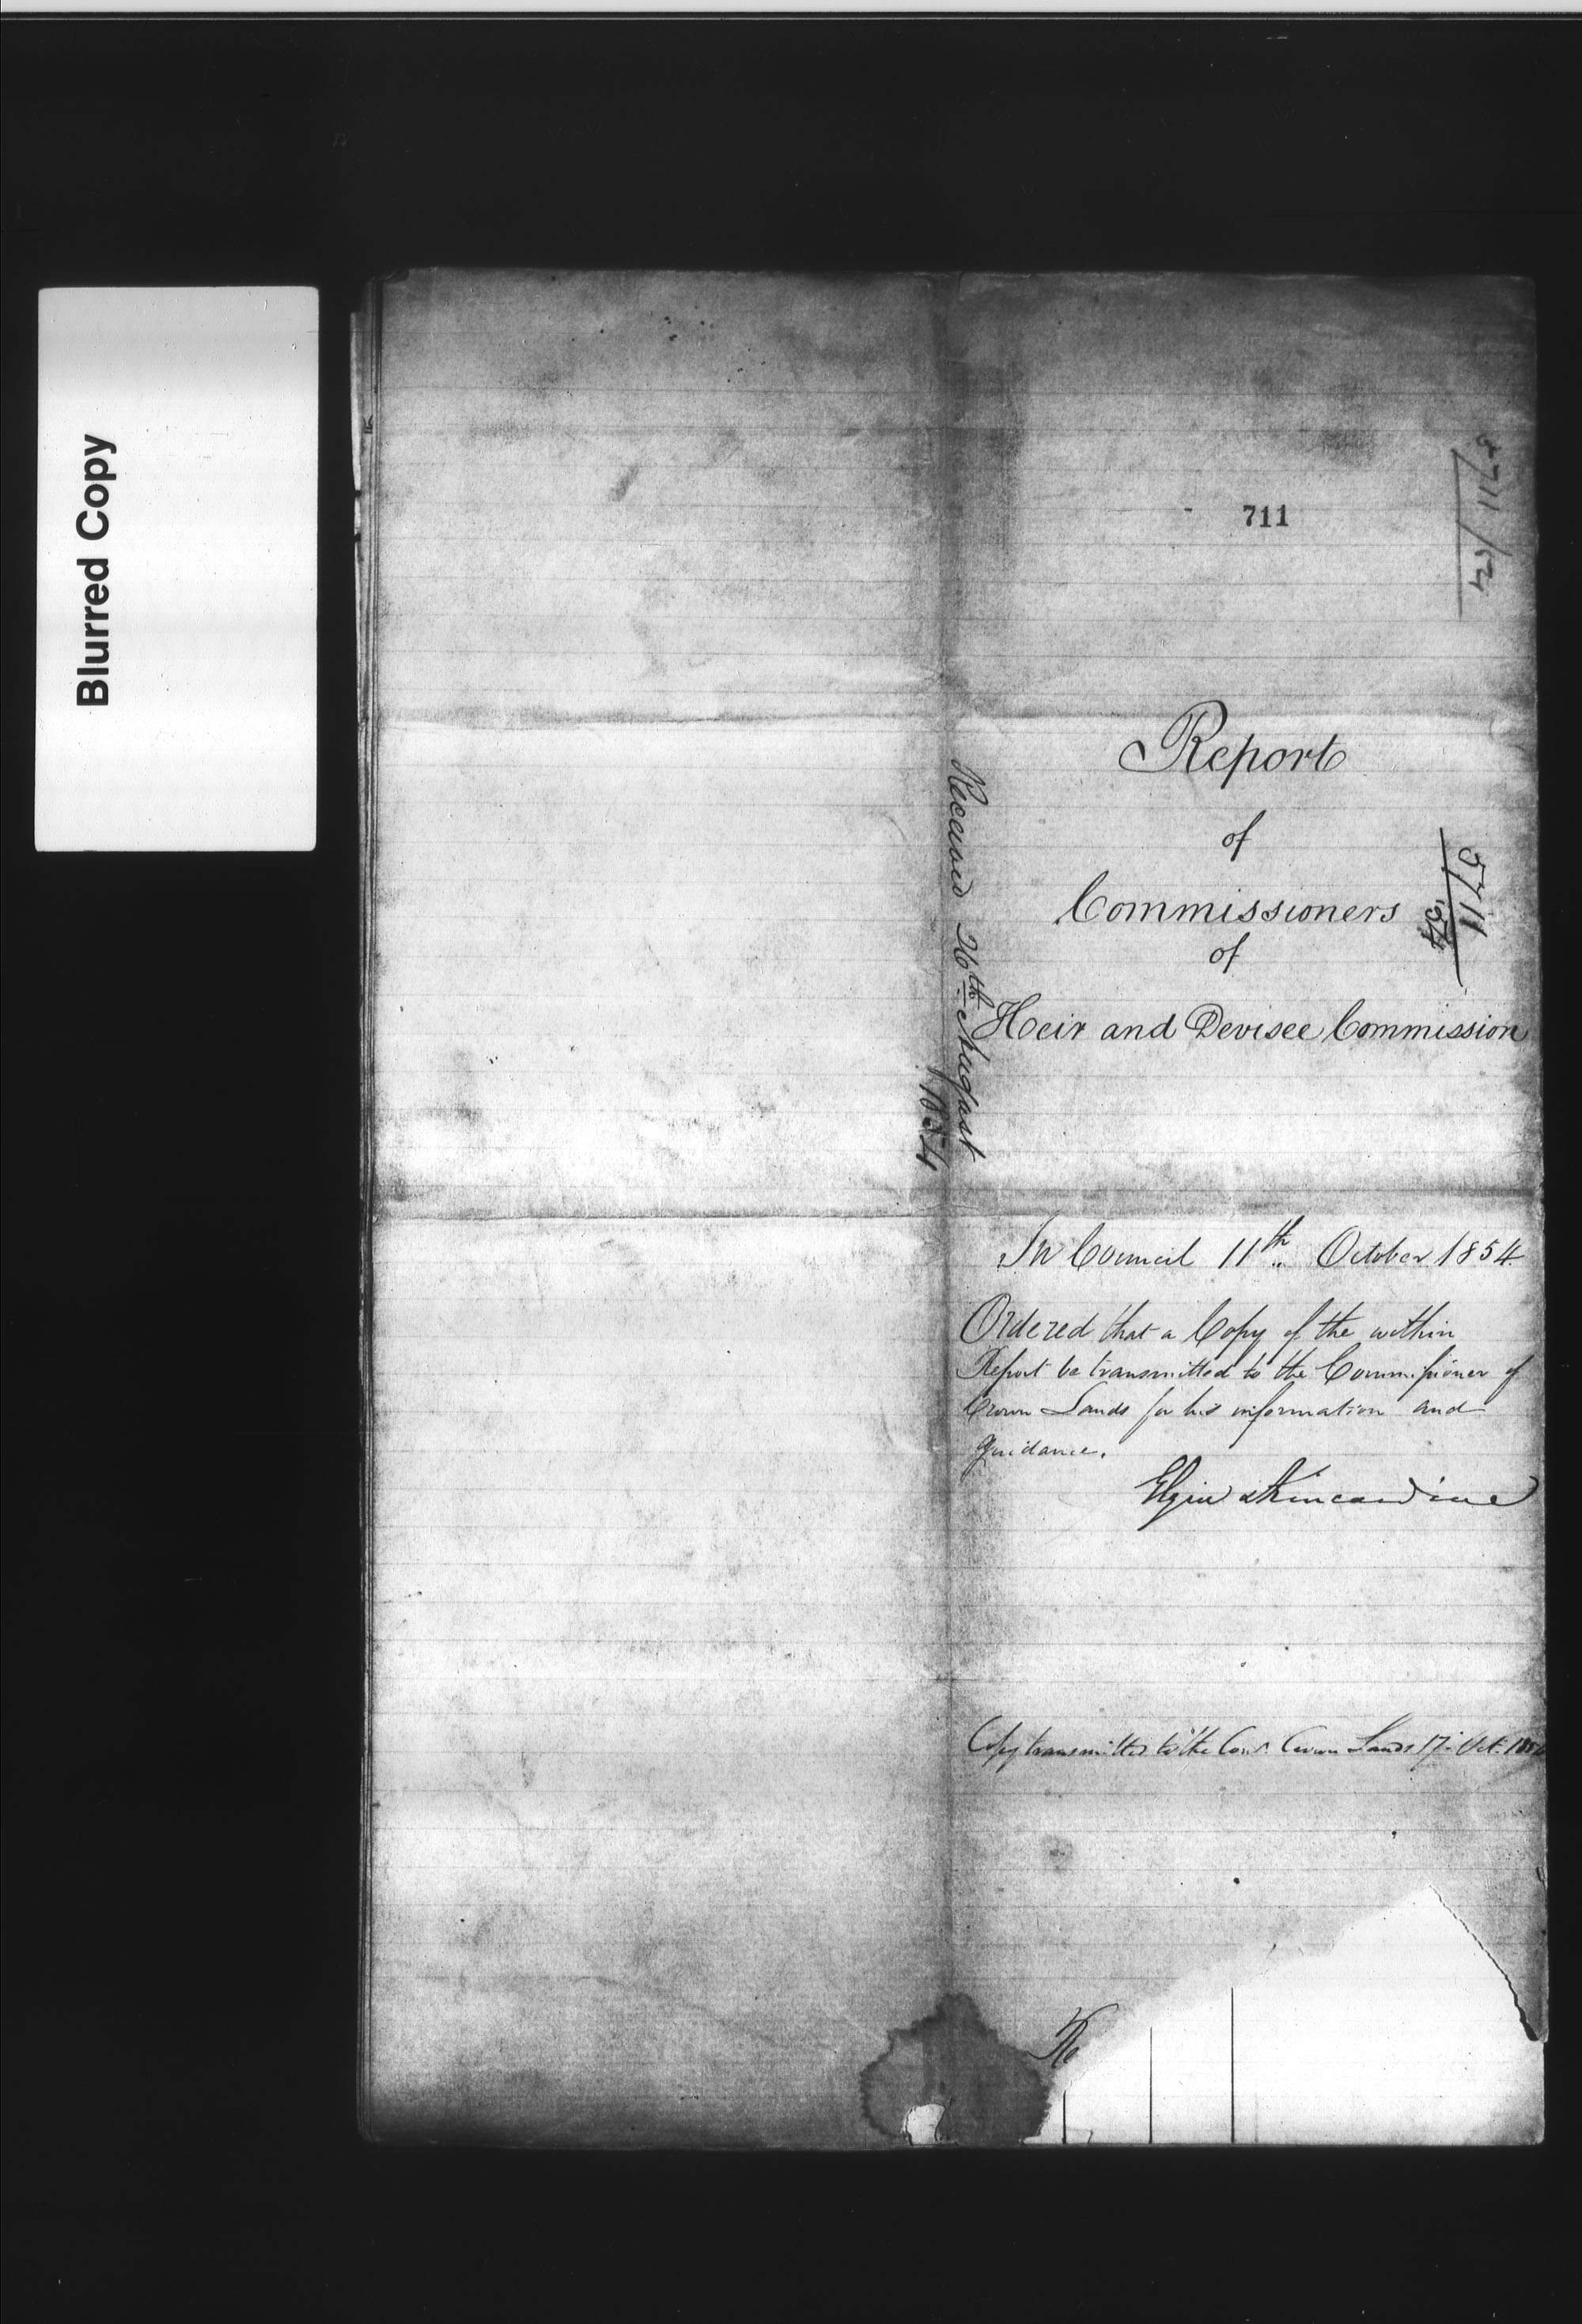 Blurred Copy
711
5711/54
Report
of
Commissioners
of
Heir and Devisee Commission
5711
'54
Received 26th August
1854
In Council 11th October 1854
Ordered that a Copy of the within
Report be transmitted to the Commissioner of
Crown Lands for his information and
guidance.
Elgin & Kincardine
Copy transmitted to the Comr Crown Lands 17 Oct.